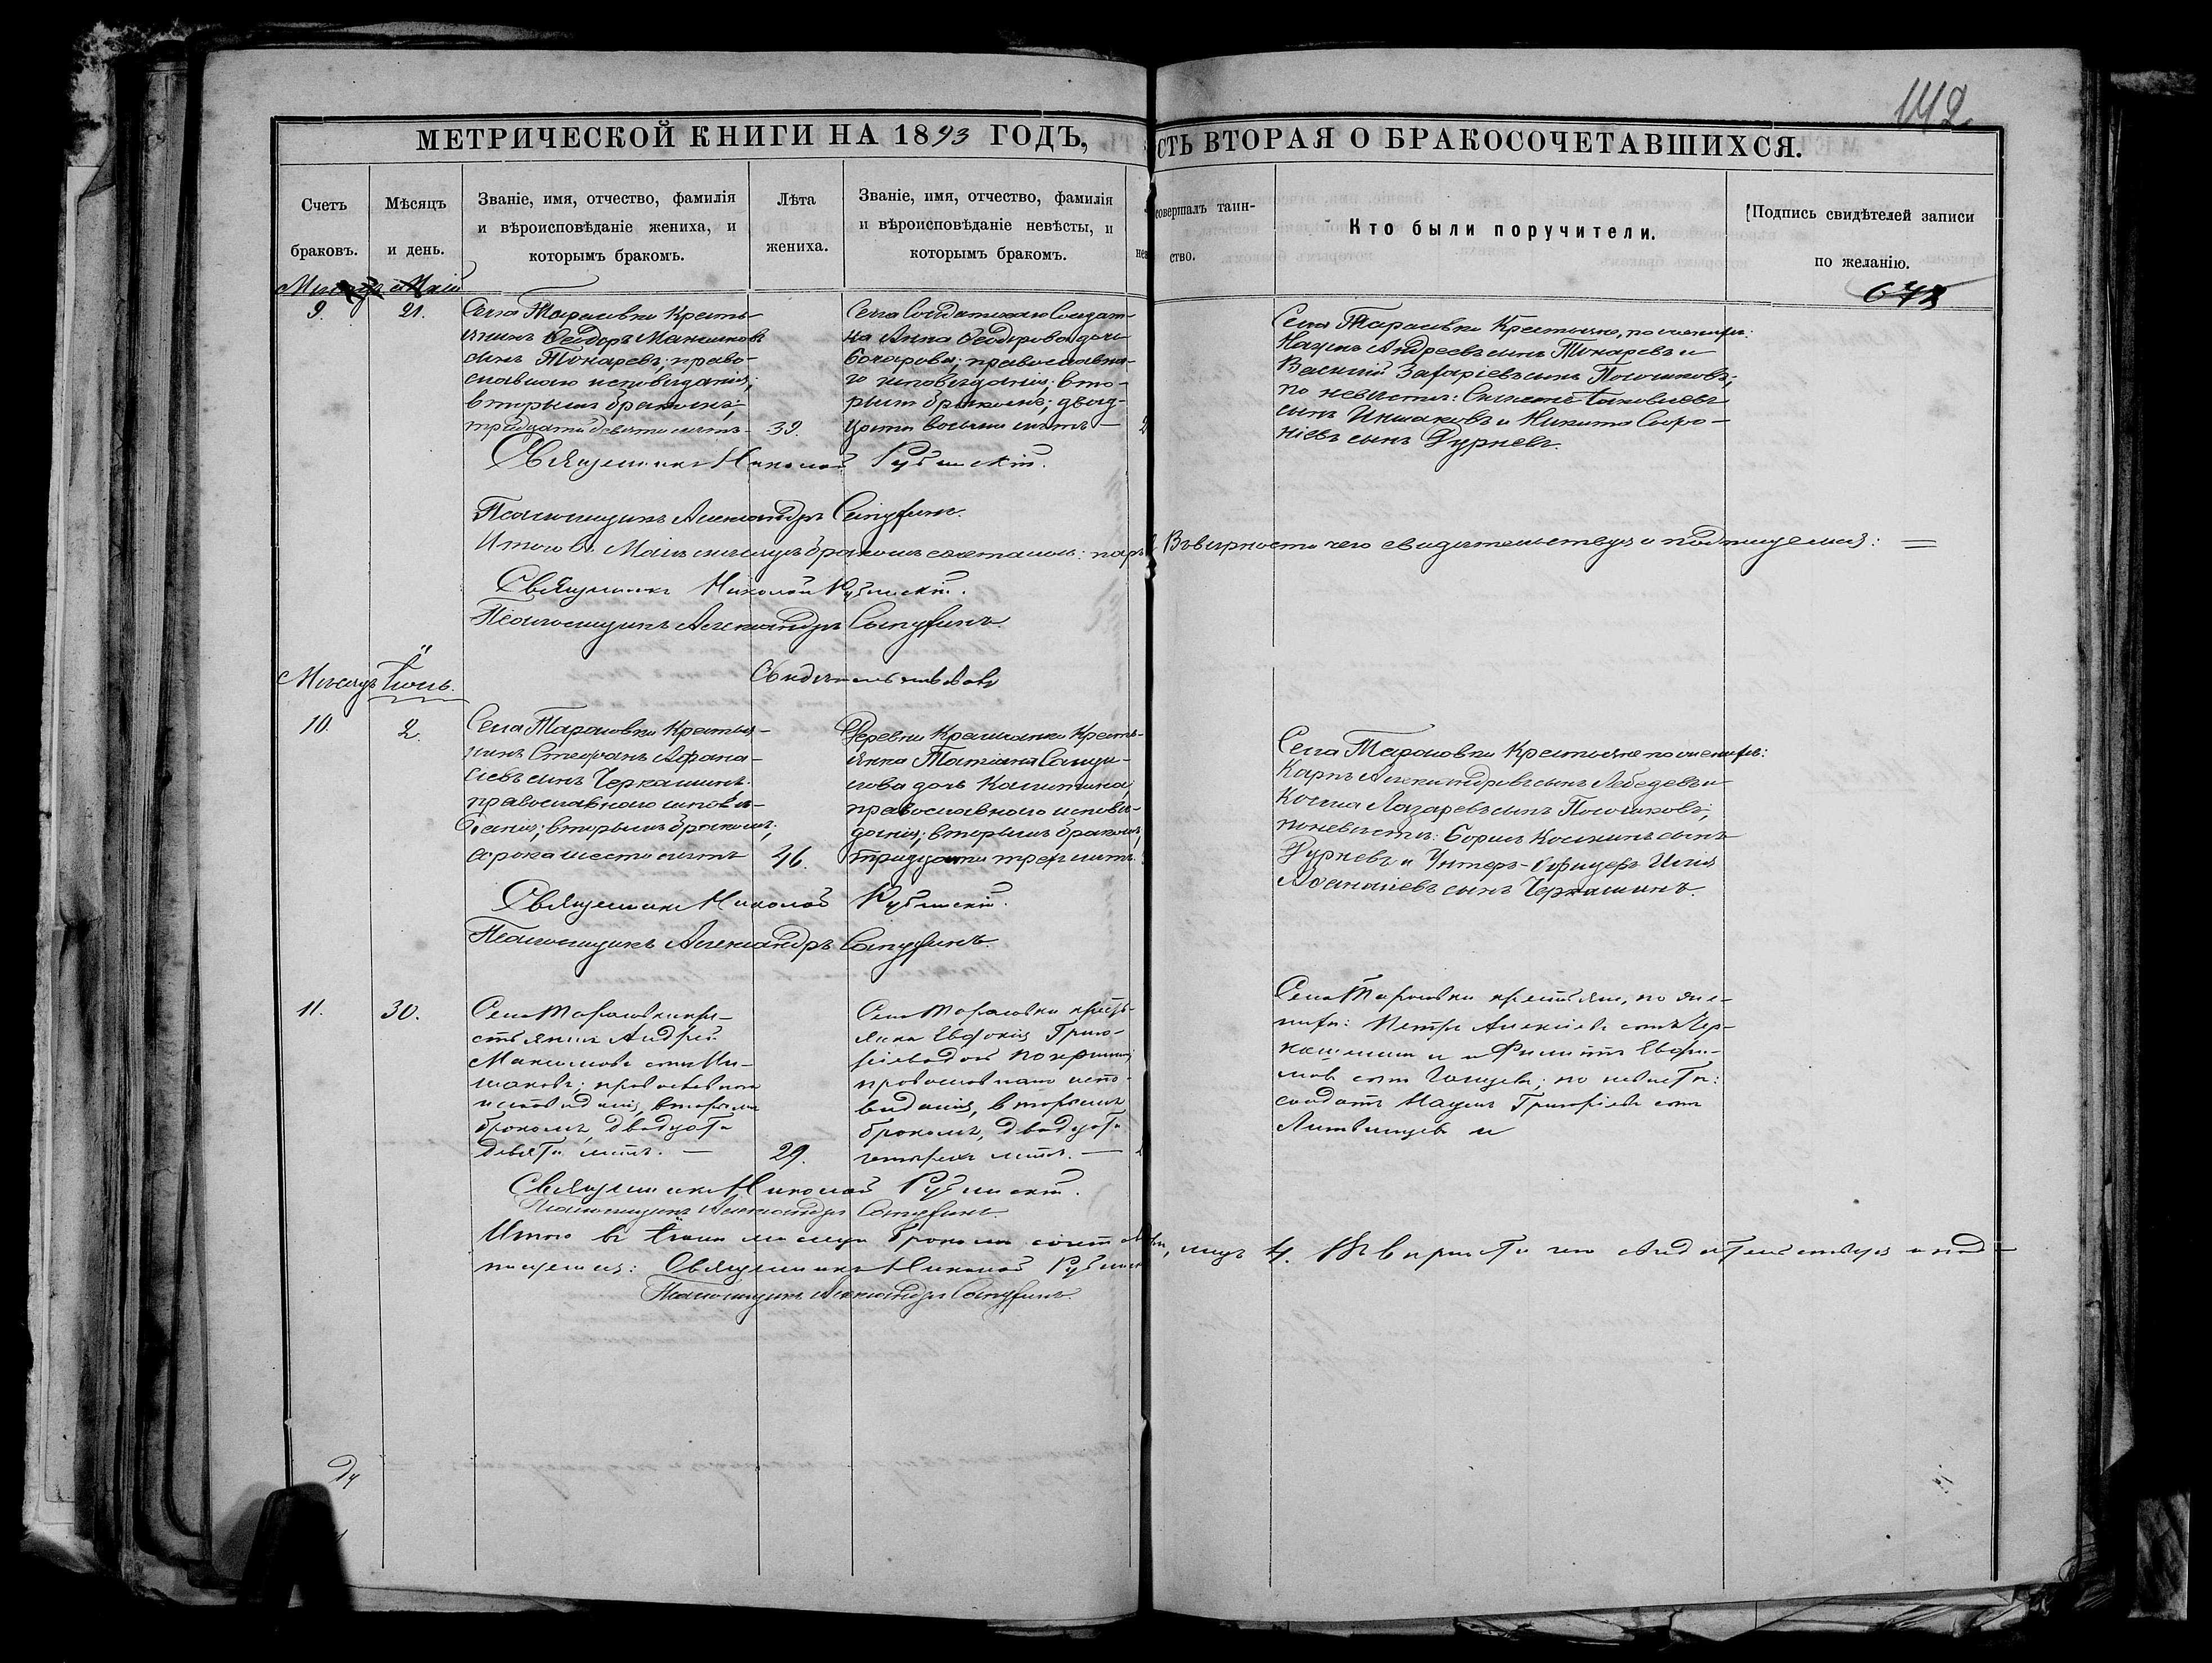 142
МЕТРИЧЕСКОЙ КНИГИ НА 1893 ГОДЪ,
СТЬ ВТОРАЯ О БРАКОСОЧЕТАВШИХСЯ.
Счетъ браковъ.
Мѣсяцъ и день.
Званіе, имя, отчество, фамилія и вѣроисповѣданіе жениха, и которымъ бракомъ.
Лѣта жениха.
Званіе, имя, отчество, фамилія и вѣроисповѣданіе невѣсты, и которымъ бракомъ.
совершалъ таин-
ство.
Кто были поручители.
Подпись свидѣтелей записи по желанію.
678
Мѣсяцъ Май
9.
21.
Села Тарасовки Кресть-
янинъ Ѳеодоръ Максимовъ
сынъ Токаревъ; право-
славнаго исповѣданія;
вторымъ бракомъ;
тридцати девяти лѣтъ
39.
Села Солдатскаго Солдат-
ка Анна Ѳеодорова дочь
Бочарова; православна-
го исповѣданія; вто-
рымъ бракомъ; двад-
цати восьми лѣтъ
Села Тарасовки Крестьяне, по женихѣ:
Наумъ Андреевъ сынъ Токаревъ и
Василій Захаріевъ сынъ Посошковъ;
по невѣстѣ: Іаковлевъ
сынъ Иншаковъ и Никита
сынъ Дурневъ.
Священникъ Николай
Псаломщикъ Александръ
Итого въ Маѣ мѣсяцѣ бракомъ сочетались: паръ
Въ вѣрности чего свидѣтельствуемъ и подписуемся:
Священникъ Николай
Псаломщикъ Александръ
Мѣсяцъ Іюнь.
10.
2.
Села Тарасовки Крестья-
нинъ Стефанъ Афана-
сіевъ сынъ Черкашинъ
православнаго исповѣ-
данія; вторымъ бракомъ;
сорока шести лѣтъ
46.
Деревни Крестья-
янка Татіана
лова дочь Калинина
православнаго исповѣ-
данія; вторымъ бракомъ,
тридцати трехъ лѣтъ.
Села Тарасовки Крестьяне по женихѣ:
Карпъ Александровъ сынъ Лебедевъ и
Косма Лазаревъ сынъ Посошковъ;
по невѣстѣ: Борисъ Косминъ сынъ
Дурневъ и Унтеръ-Офицеръ Илія
Аѳанасіевъ сынъ Черкашинъ.
Священникъ Николай
Псаломщикъ Александръ
11.
30.
Села Тарасовки кре-
стьянинъ Андрей
Максимовъ сынъ Ин-
шаковъ; православнаго
исповѣданія, вторымъ
бракомъ, двадцати
девяти лѣтъ.
29.
Села Тарасовки кресть-
янка Евдокія Григо-
ріева дочь
православнаго испо-
вѣданія, вторымъ
бракомъ, двадцати
четырехъ лѣтъ.
Села Тарасовки крестьяне, по же-
нихѣ: Петръ Алексіевъ сынъ Чер-
кашинъ и Филиппъ Евфи-
мовъ сынъ по невѣстѣ:
солдатъ Наумъ Григоріевъ сынъ
Литвинцевъ и
Священникъ Николай
Псаломщикъ Александръ
Итого въ Іюнѣ мѣсяцѣ бракомъ
лицъ 4. Въ вѣрности чего свидѣтельствуемъ и под-
писуемся: Священникъ Николай
Псаломщикъ Александръ